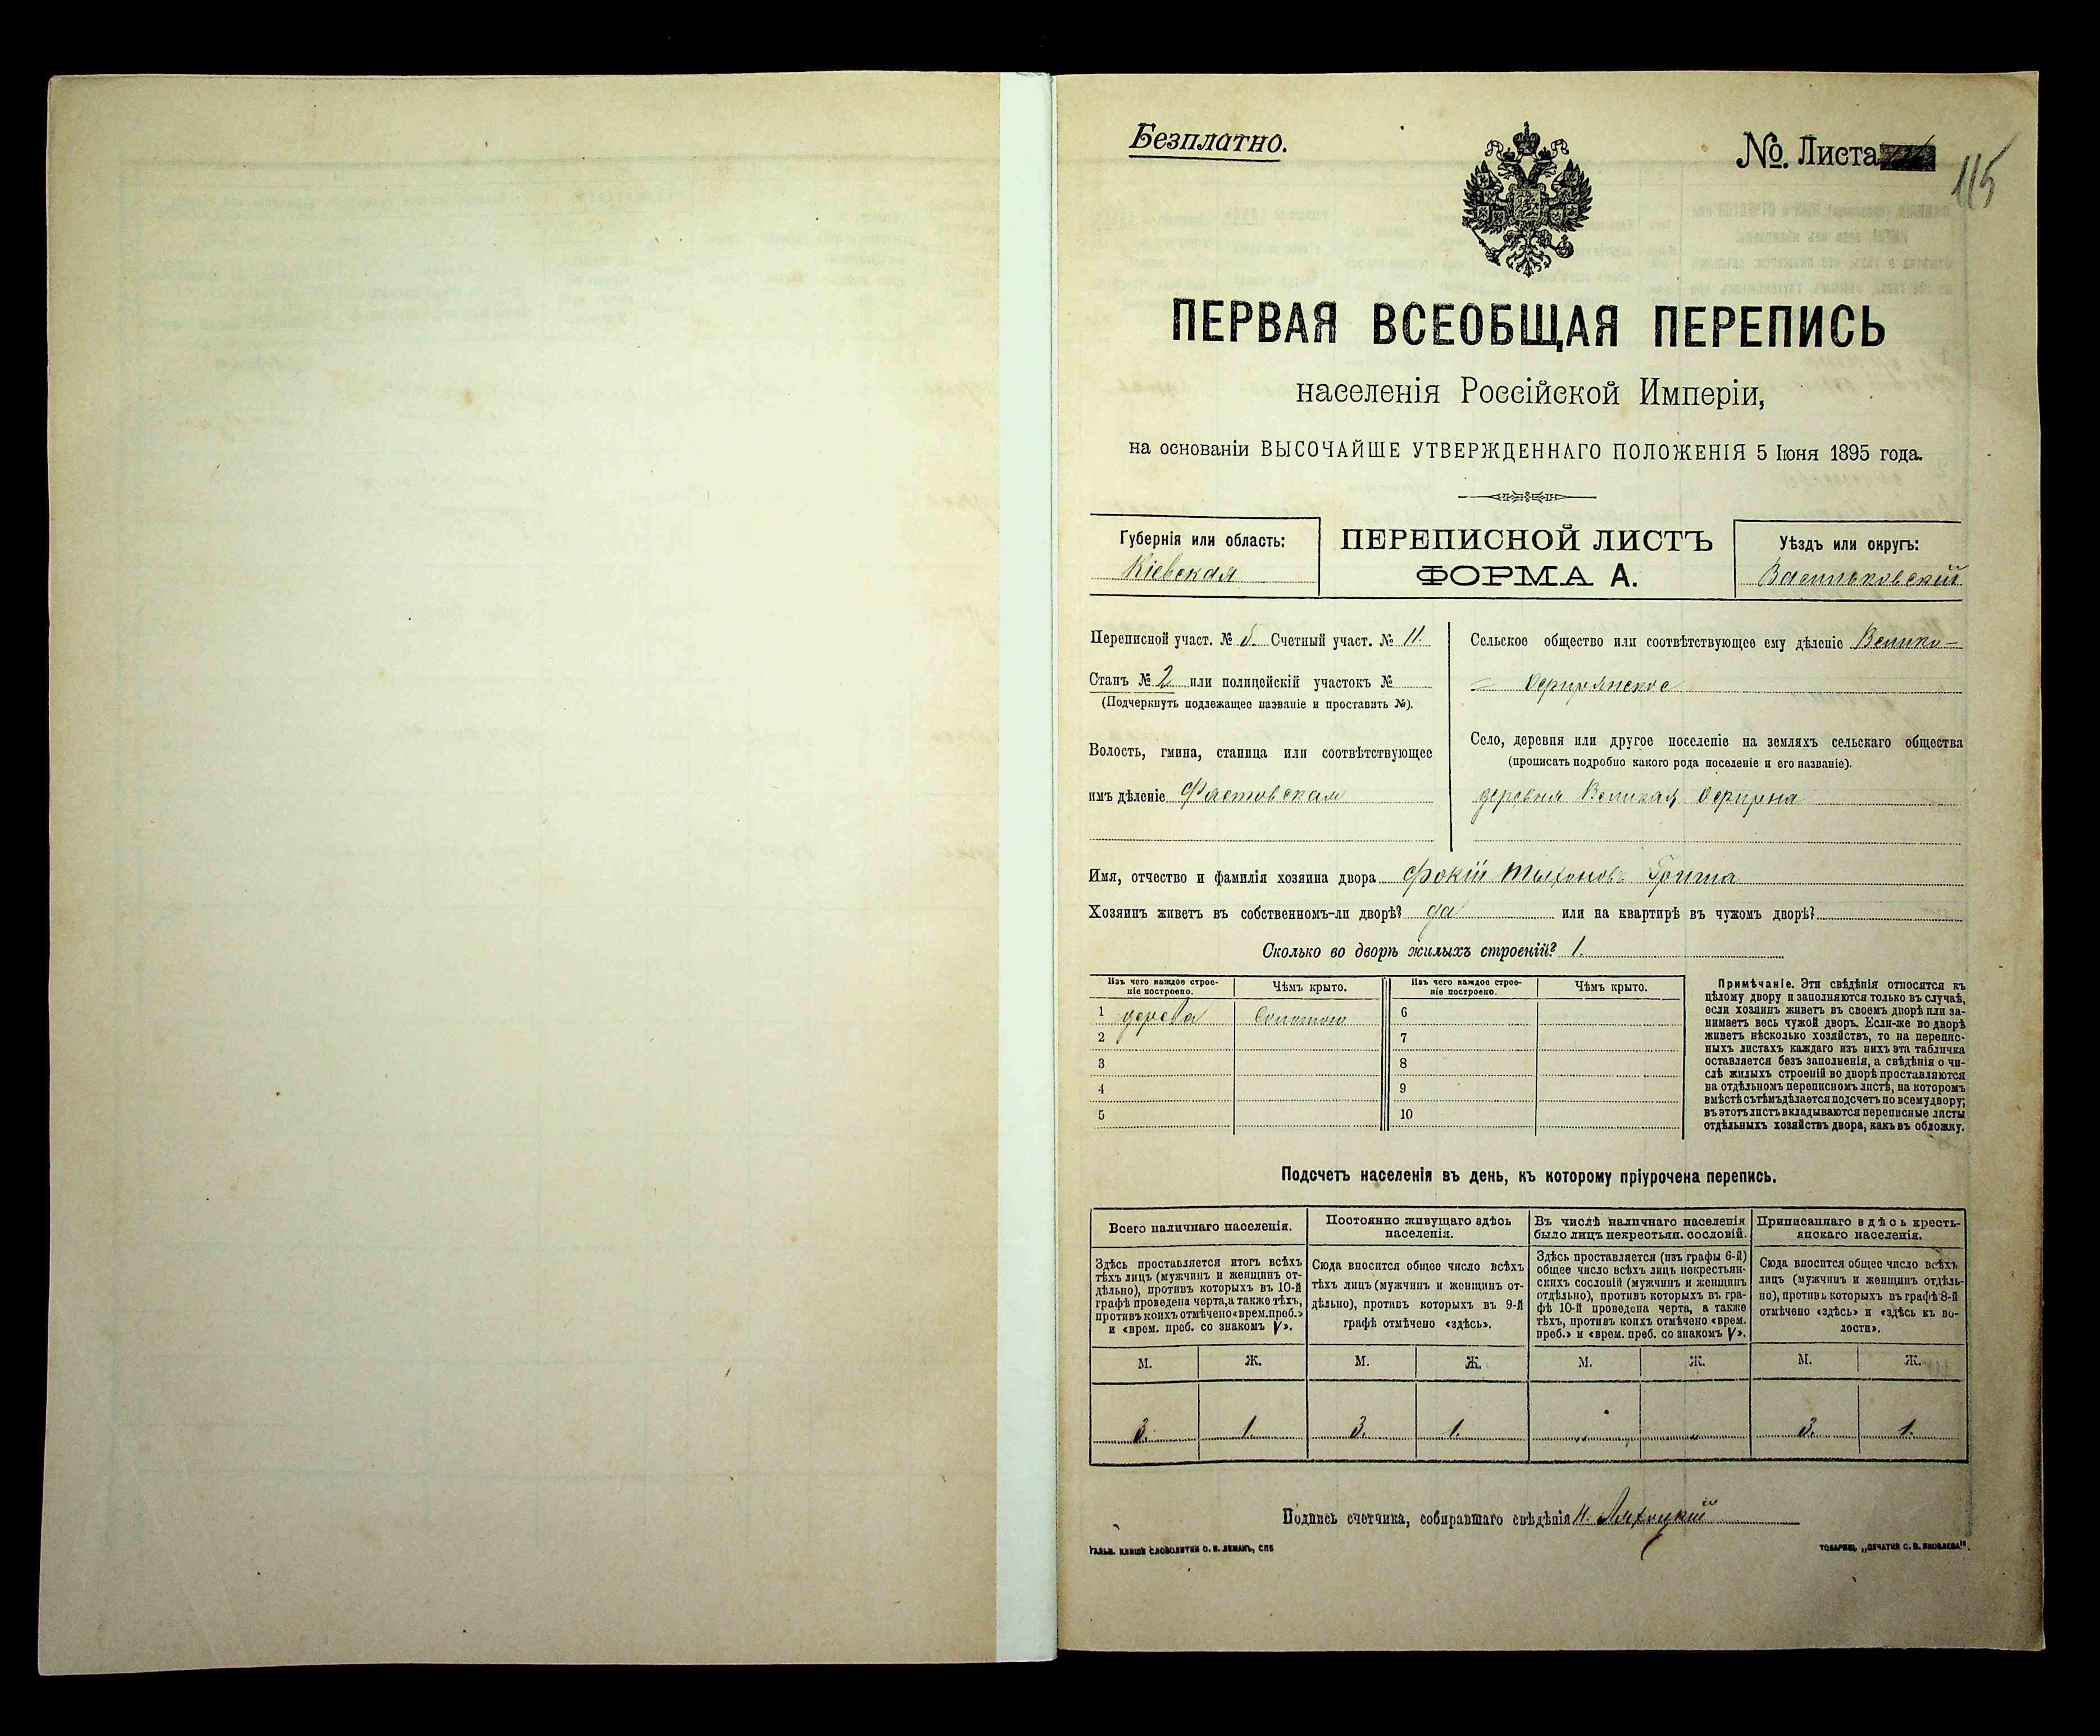 Безплатно.
№. Листа 115
ПЕРВАЯ ВСЕОБЩАЯ ПЕРЕПИСЬ
населенія Россійской Имперіи,
на основаніи ВЫСОЧАЙШЕ УТВЕРЖДЕННАГО ПОЛОЖЕНІЯ 5 Іюня 1895 года.
Губернія или область:
Кіевская
ПЕРЕПИСНОЙ ЛИСТЪ
ФОРМА А.
Уѣздъ или округъ:
Васильковскій
Переписной участ. № 5. Счетный участ. № 11.
Станъ № 2 или полицейскій участокъ №
(Подчеркнуть подлежащее названіе и проставить №).
Волость, гмина, станица или соотвѣтствующее
имъ дѣленіе Фастовская
Сельское общество или соотвѣтствующее ему дѣленіе Велико-
Село, деревня или другое поселеніе на земляхъ сельскаго общества
(прописать подробно какого рода поселеніе и его названіе).
деревня Великая
Имя, отчество и фамилія хозяина двора Фокій Тихоновъ
Хозяинъ живетъ въ собственномъ-ли дворѣ? да или на квартирѣ въ чужомъ дворѣ?
Сколько во дворѣ жилыхъ строеній? 1.
Изъ чего каждое строе-
ніе построено.
Чѣмъ крыто.
Изъ чего каждое строе-
ніе построено.
Чѣмъ крыто.
1 дерева Соломою 6
2 7
3 8
4 9
5 10
Примѣчаніе. Эти свѣдѣнія относятся къ
цѣлому двору и заполняются только въ случаѣ,
если хозяинъ живетъ въ своемъ дворѣ или за-
нимаетъ весь чужой дворъ. Если-же во дворѣ
живетъ нѣсколько хозяйствъ, то на перепис-
ныхъ листахъ каждаго изъ нихъ эта табличка
оставляется безъ заполненія, а свѣдѣнія о чи-
слѣ жилыхъ строеній во дворѣ проставляются
на отдѣльномъ переписномъ листѣ, на которомъ
вмѣстѣ съ тѣмъ дѣлается подсчетъ по всему двору;
въ этотъ листъ вкладываются переписные листы
отдѣльныхъ хозяйствъ двора, какъ въ обложку.
Подсчетъ населенія въ день, къ которому пріурочена перепись.
Всего наличнаго населенія.
Здѣсь проставляется итогъ всѣхъ
тѣхъ лицъ (мужчинъ и женщинъ от-
дѣльно), противъ которыхъ въ 10-й
графѣ проведена черта, а также тѣхъ,
противъ коихъ отмѣчено «врем. преб.»
и «врем. преб. со знакомъ V».
Постоянно живущаго здѣсь
населенія.
Сюда вносится общее число всѣхъ
тѣхъ лицъ (мужчинъ и женщинъ от-
дѣльно), противъ которыхъ въ 9-й
графѣ отмѣчено «здѣсь».
Въ числѣ наличнаго населенія
было лицъ некрестьян. сословій.
Здѣсь проставляется (изъ графы 6-й)
общее число всѣхъ лицъ некрестьян-
скихъ сословій (мужчинъ и женщинъ
отдѣльно), противъ которыхъ въ гра-
фѣ 10-й проведена черта, а также
тѣхъ, противъ коихъ отмѣчено «врем.
преб.» и «врем. преб. со знакомъ V».
Приписаннаго здѣсь кресть-
янскаго населенія.
Сюда вносится общее число всѣхъ
лицъ (мужчинъ и женщинъ отдѣль-
но), противъ которыхъ въ графѣ 8-й
отмѣчено «здѣсь» и «здѣсь къ во-
лости».
М. Ж. М. Ж. М. Ж. М. Ж.
3. 1. 3. 1. 3. 1.
Подпись счетчика, собиравшаго свѣдѣнія
ГАЛЬВ. КЛИШЕ СЛОВОЛИТНИ О. И. ЛЕМАНЪ, СПБ
ТОВАРИЩ. „ПЕЧАТНЯ С. П. ЯКОВЛЕВА".